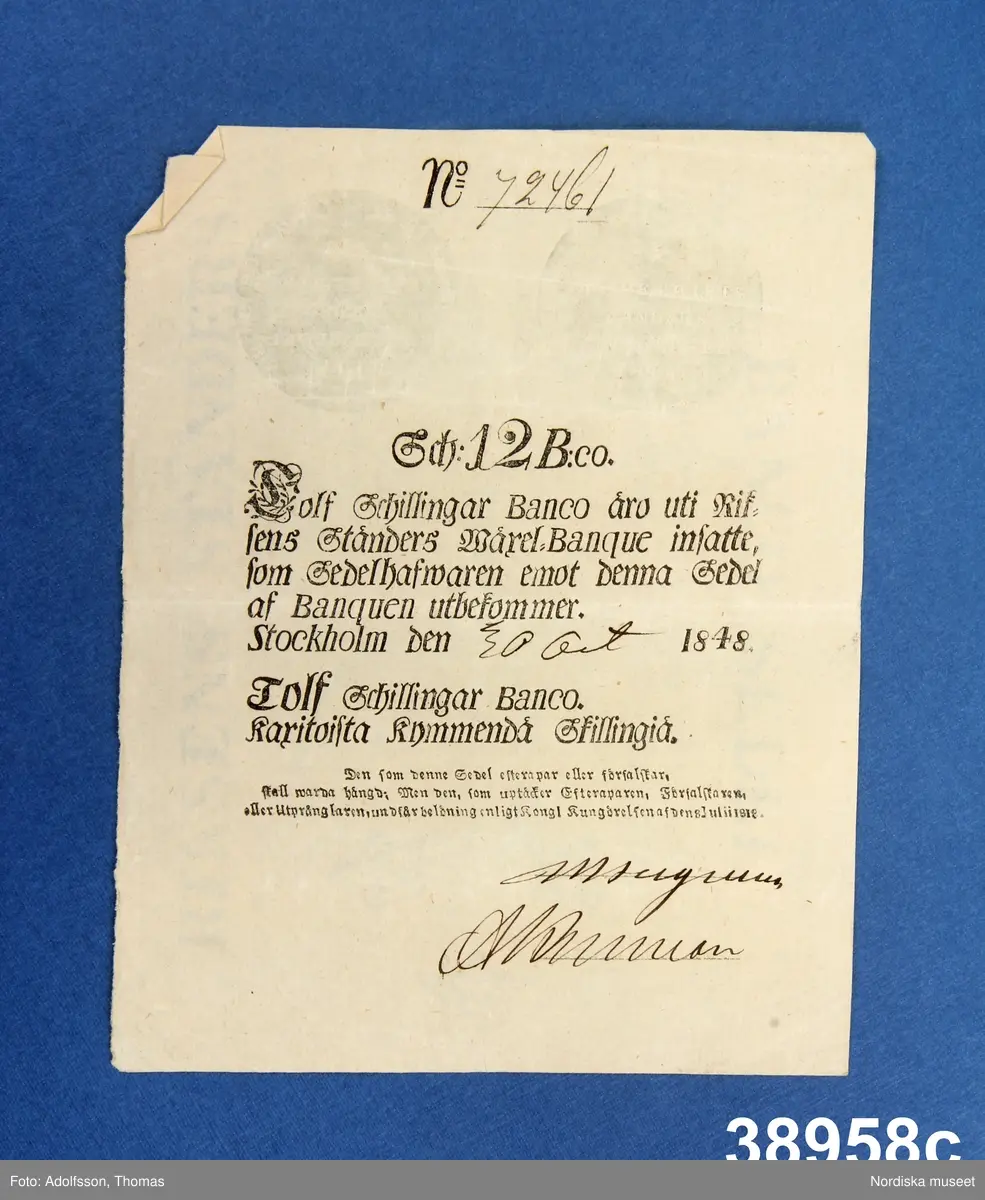 No 72461
Sch: 12 B:co.
Tolf Schillingar Banco äro uti Rik-
sens Ständers Wäxel-Banque insatte,
som Sedelhafwaren emot denna Sedel
af Banquen utbekommer.
Stockholm den 30 Oct 1848.
Tolf Schillingar Banco.
Kaxitoista Kymmendä Skillingiä.
Den som denne Sedel efterapar eller förfalskar,
skall warda hängd; Men den, som uptäcker Efteraparen, Förfalskaren,
eller Utprånglaren, undfår belöning enligt Kongl Kungörelsen af den Julii 1818.
38958c
Foto: Adolfsson, Thomas
Nordiska museet